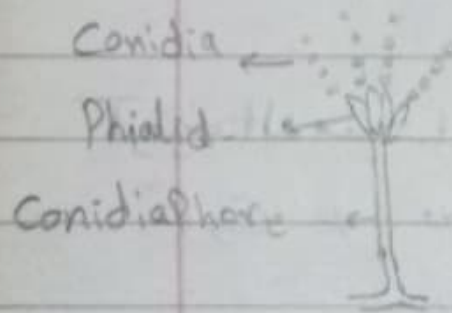 Conidia
Phialid
Conidiaphore